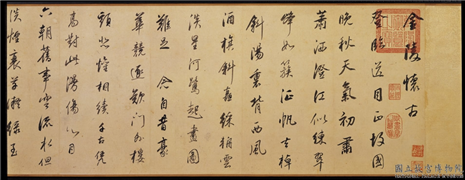 金陵懷古
登臨送目正故國
晚秋天氣初肅
蕭洒澄江似練翠
峰如簇征帆去棹
斜陽裏背西風
酒旗斜矗綵舟雲
淡星河鷺起畫圖
難足 念自昔豪
華競逐歎門外樓
頭悲恨相續千古凭
高對此
六朝舊事流水但
煙衰草凝綠
國立故宮博物院